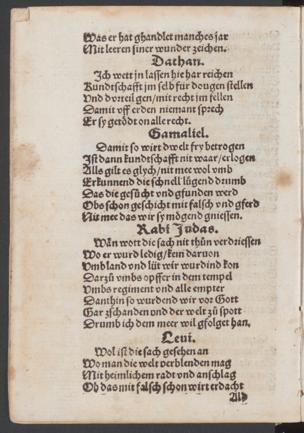 Was er hat ghandlet manches jar
Mit leeren siner wunder zeichen.
Dathan.
Ich wett jn lassen hie har reichen
Kundtschafft jm selb für dougen stellen
Vnd vrteil gen/mit recht jm fellen
Damit vff erden niemant sprech
Er sy getödt on alle recht.
Gamaliel.
Damit so wirt dwelt fry betrogen
Ist dann kundtschafft nit waar/erlogen
Alls gilt es glych/nit mee wol vmb
Erkunnend die schnell lügend drumb
Das die gesücht vnd gfunden werd
Obs schon geschicht mit falsch vnd gferd
Nit mee das wir sy mögend gniessen.
Rabi Judas.
Wän wott die sach nit thün verdriessen
Wo er wurd ledig/kem daruon
Vmb land vnd lüt wir wurdind kon
Darzü vmbs opffer in dem tempel
Vmbs regiment vnd alle empter
Danthin so wurdend wir vor Gott
Gar zschanden vnd der welt zü spott
Drumb ich dem meer wil gfolget han.
Leui.
Wol ist die sach gesehen an
Wo man die welt verblenden mag
Mit heimlichem radt vnd anschlag
Ob das mit falsch schon wirt erdacht